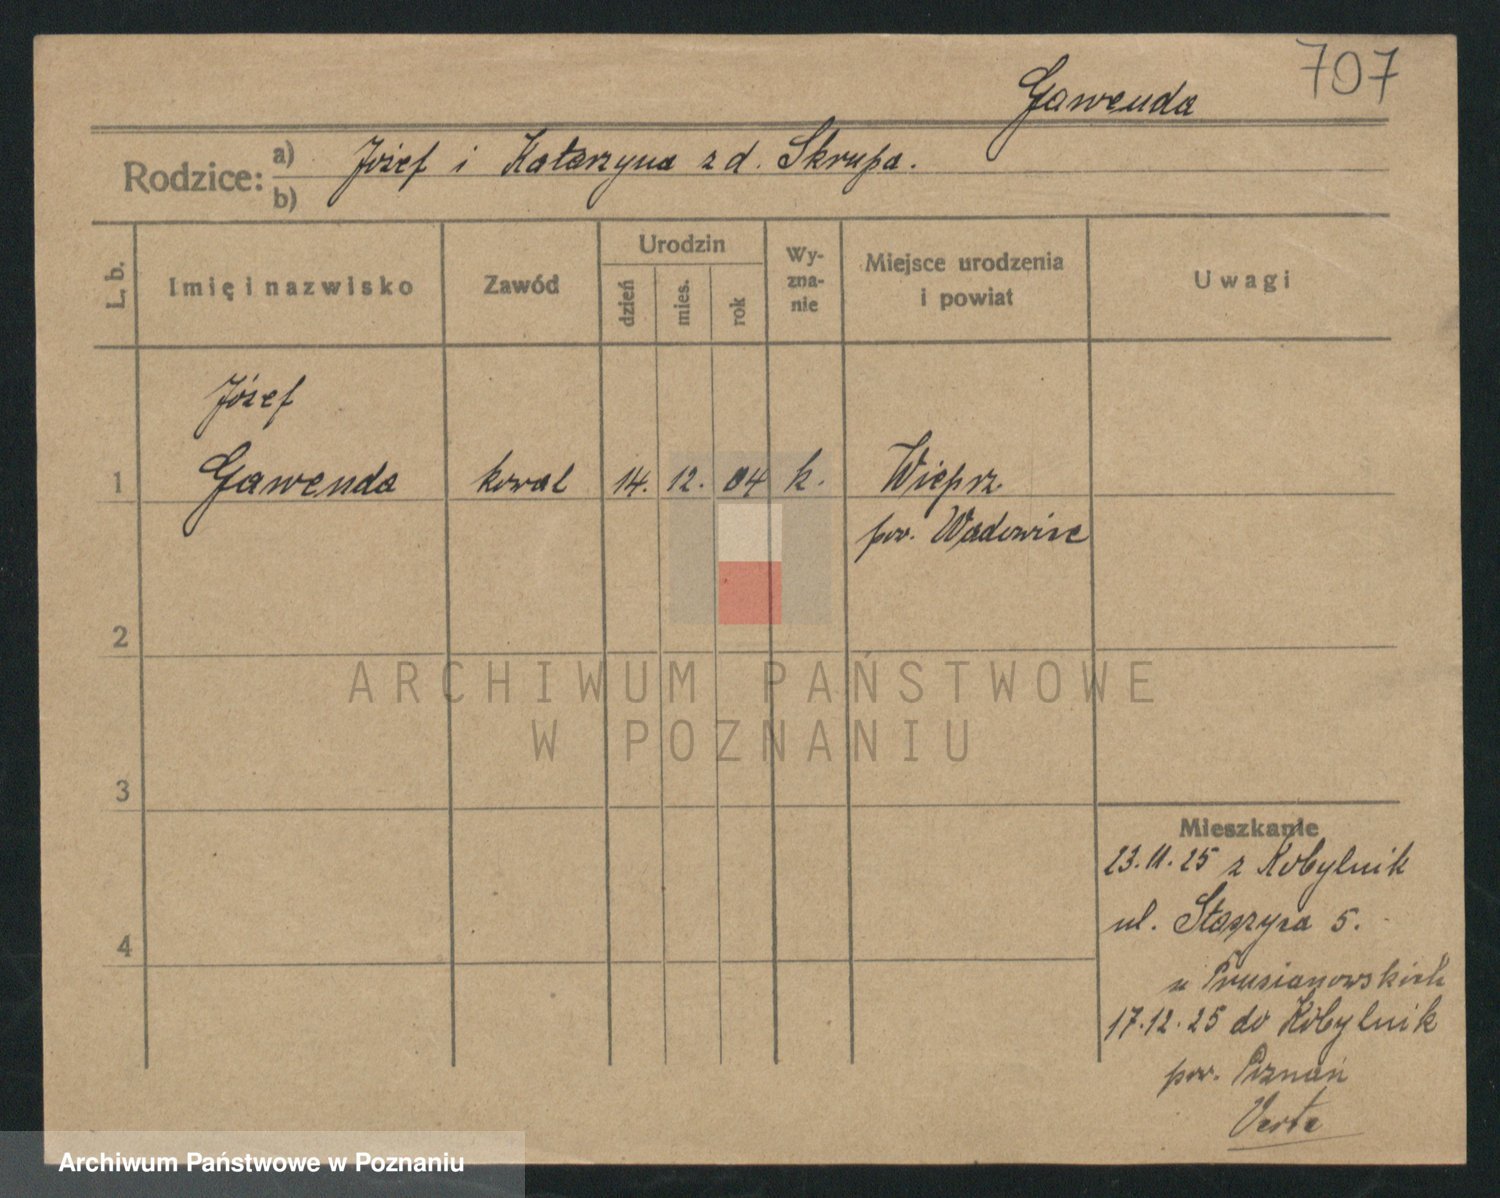 707
Gawenda
Rodzice: a) Józef i Katarzyna z d. Skrupa.
b)
L. b. Imię i nazwisko Zawód Urodzin dzień mies. rok Wy-zna-nie Miejsce urodzenia i powiat Uwagi
Józef
1 Gawenda kowal 14. 12. 04 k. Wieprz
pow. Wadowice
2
ARCHIWUM PAŃSTWOWE
W POZNANIU
3
Mieszkanie
23.11.25 z Kobylnik
ul. Staszyca 5.
u Prusianowskich
4
17.12.25 do Kobylnik
pow. Poznań
Verte
Archiwum Państwowe w Poznaniu